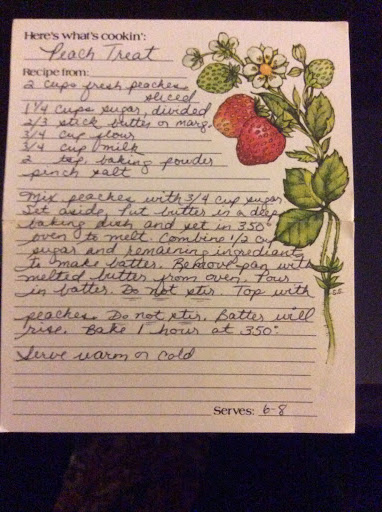 Here's what's cookin':
Peach Treat
Recipe from:
2 cups fresh peaches
sliced
1 1/4 cups sugar, divided
2/3 stick butter or marg.
3/4 cup flour
3/4 cup milk
2 tsp. baking powder
pinch salt
Mix peaches with 3/4 cup sugar
Set aside. Put butter in a deep
baking dish and set in 350°
oven to melt. Combine 1/2 cup
sugar and remaining ingredients
to make batter. Remove pan with
melted butter from oven. Pour
in batter. Do not stir. Top with
peaches. Do not stir. Batter will
rise. Bake 1 hour at 350°
Serve warm or cold
Serves: 6-8